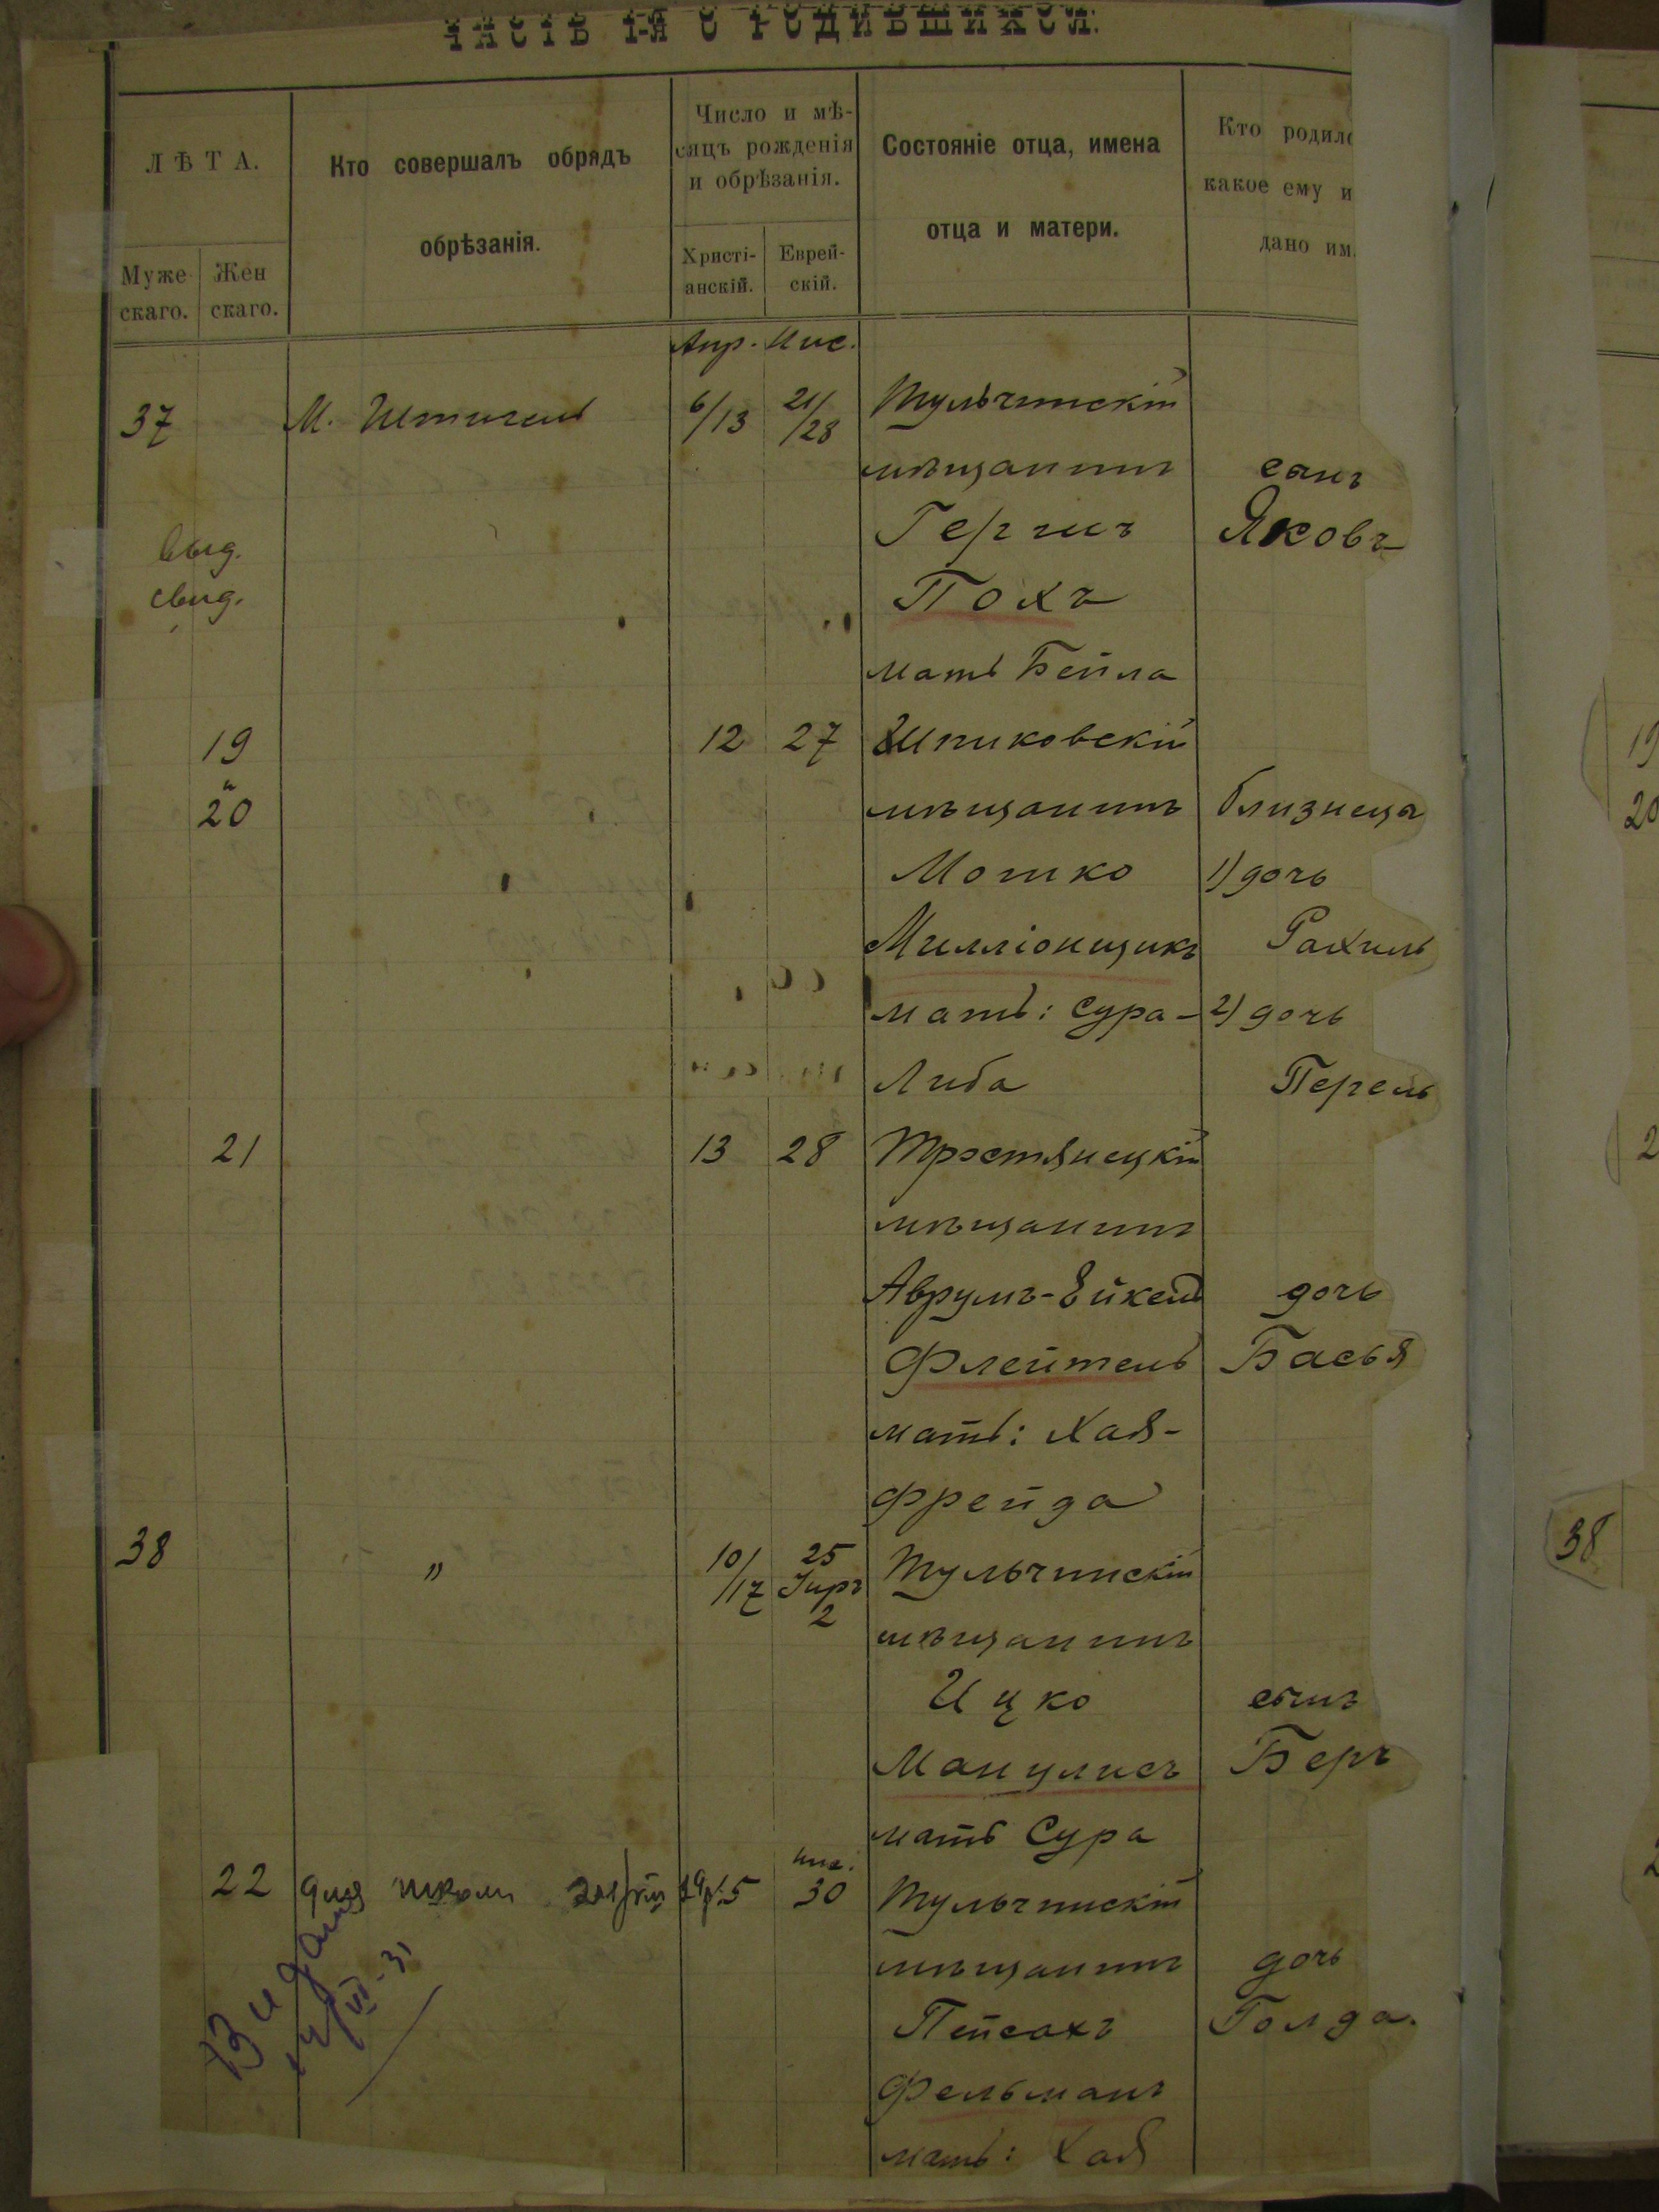 Часть 1-я о родившихся.
ЛѢТА.
Муже-
скаго.
Жен
скаго.
Кто совершалъ обрядъ
обрѣзанія.
Число и мѣ-
сяцъ рожденія
и обрѣзанія.
Христі-
анскій.
Еврей-
скій.
Состояніе отца, имена
отца и матери.
Кто родилс
какое ему и
дано им
Апр. Нис.
37 6/13 21/28 Тульчинскій
мѣщанинъ сынъ
Гершъ Яковъ
выд.
свид.
Похъ
мать Бейла
19 12 27 Шпиковскій
и
20 мѣщанинъ близнецы
Мошко 1) дочь
Милліонщикъ Рахиль
мать: Сура- 2) дочь
Либа Перель
21 13 28 Тростянецкій
мѣщанинъ
Аврумъ-Ейкель дочь
Флейтель Басья
мать: Хая-
Фрейда
38 " 10/17 25 Іиръ 2 Тульчинскій
мѣщанинъ
Ицко сынъ
Манулисъ Беръ
мать Сура
22 для школи 15 нис. 30 Тульчинскій
мѣщанинъ дочь
Пейсахъ Голда.
Фельманъ
мать: Хая
19
20
38